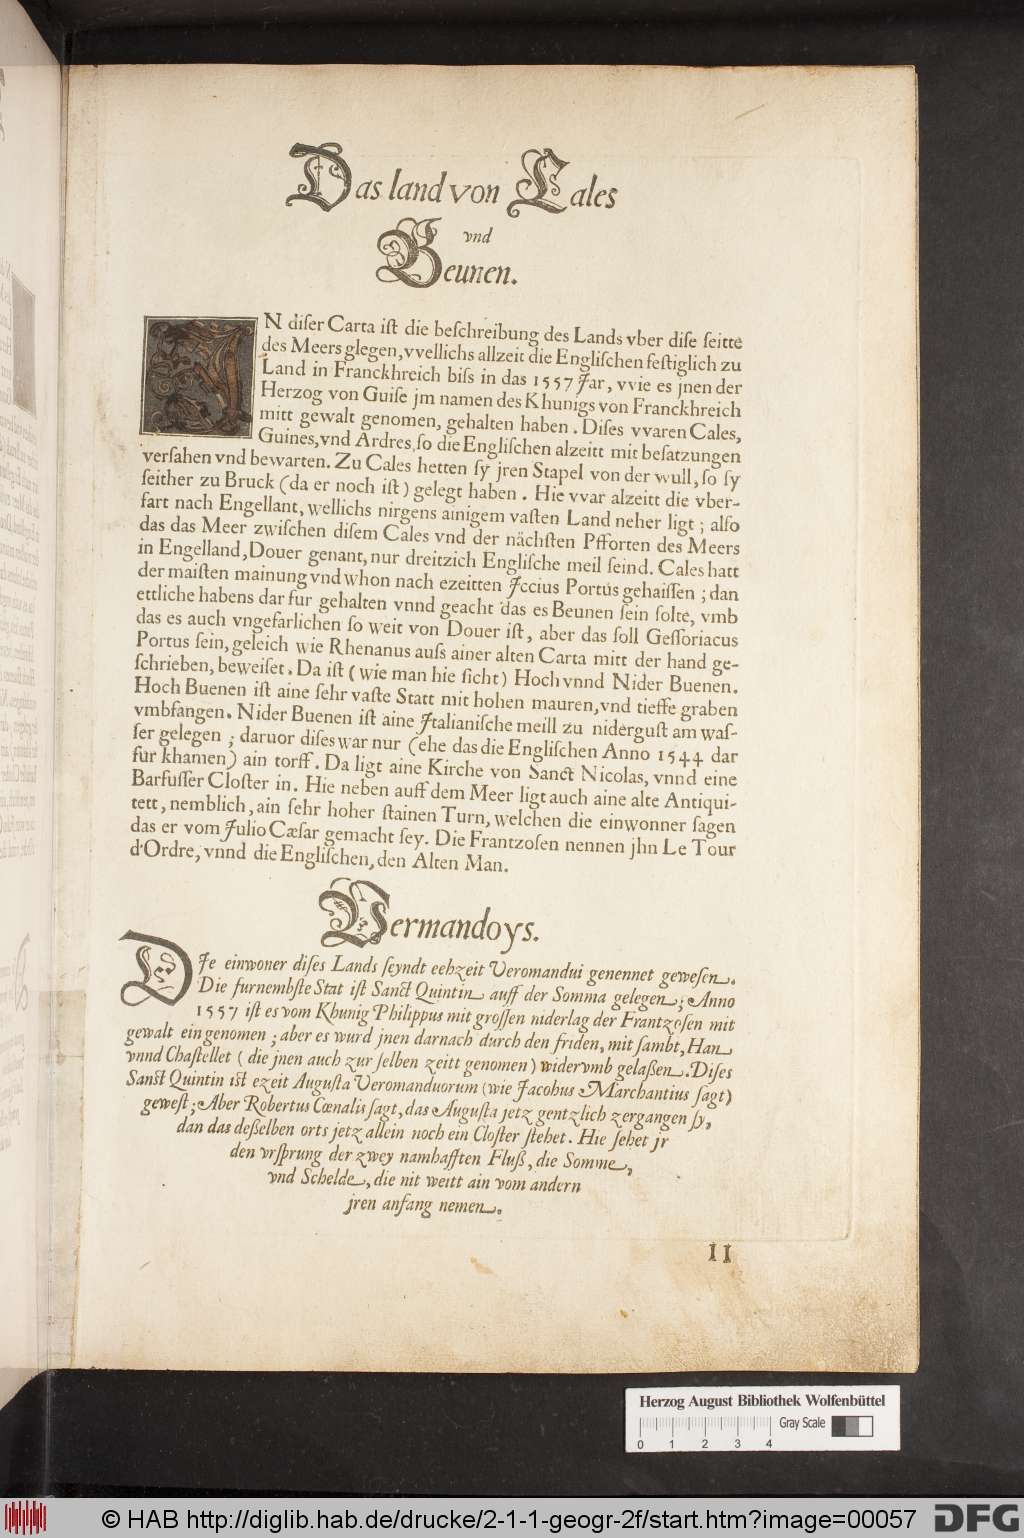 Das land von Cales
vnd
Beunen.
IN diſer Carta iſt die beſchreibung des Lands vber diſe ſeitte
des Meers glegen, vvellichs allzeit die Engliſchen feſtiglich zu
Land in Franckhreich biſs in das 1557 Jar, vvie es jnen der
Herzog von Guiſe jm namen des Khunigs von Franckhreich
mitt gewalt genomen, gehalten haben. Diſes vvaren Cales,
Guines, vnd Ardres, ſo die Engliſchen alzeitt mit beſatzungen
verſahen vnd bewarten. Zu Cales hetten ſy jren Stapel von der wull, ſo ſy
ſeither zu Bruck (da er noch iſt) gelegt haben. Hie vvar alzeitt die vber-
fart nach Engellant, wellichs nirgens ainigem vaſten Land neher ligt; alſo
das das Meer zwiſchen diſem Cales vnd der nächſten Pfforten des Meers
in Engelland, Douer genant, nur dreitzich Engliſche meil ſeind. Cales hatt
der maiſten mainung vnd whon nach ezeitten Jccius Portus gehaiſſen; dan
ettliche habens dar fur gehalten vnnd geacht das es Beunen ſein ſolte, vmb
das es auch vngefarlichen ſo weit von Douer iſt, aber das ſoll Geſſoriacus
Portus ſein, geleich wie Rhenanus auſs ainer alten Carta mitt der hand ge-
ſchrieben, beweiſet. Da iſt (wie man hie ſicht) Hoch vnnd Nider Buenen.
Hoch Buenen iſt aine ſehr vaſte Statt mit hohen mauren, vnd tieffe graben
vmbfangen. Nider Buenen iſt aine Jtalianiſche meill zu niderguſt am waſ-
ſer gelegen; daruor diſes war nur (ehe das die Engliſchen Anno 1544 dar
fur khamen) ain torff. Da ligt aine Kirche von Sanct Nicolas, vnnd eine
Barfuſſer Cloſter in. Hie neben auff dem Meer ligt auch aine alte Antiqui-
tett, nemblich, ain ſehr hoher ſtainen Turn, welchen die einwonner ſagen
das er vom Julio Cæſar gemacht ſey. Die Frantzoſen nennen jhn Le Tour
d'Ordre, vnnd die Engliſchen, den Alten Man.
Vermandoys.
DJe einwoner diſes Lands ſeyndt eehzeit Veromandui genennet geweſen.
Die furnembſte Stat iſt Sanct Quintin auff der Somma gelegen; Anno
1557 iſt es vom Khunig Philippus mit groſſen niderlag der Frantzoſen mit
gewalt eingenomen; aber es wurd jnen darnach durch den friden, mit ſambt, Han
vnnd Chaſtellet (die jnen auch zur ſelben zeitt genomen) widervmb gelaßen. Diſes
Sanct Quintin iſt ezeit Auguſta Veromanduorum (wie Jacobus Marchantius ſagt)
geweſt; Aber Robertus Cœnalis ſagt, das Auguſta jetz gentzlich zergangen ſy,
dan das deßelben orts jetz allein noch ein Cloſter ſtehet. Hie ſehet jr
den vrſprung der zwey namhafften Fluß, die Somme,
vnd Schelde, die nit weitt ain vom andern
jren anfang nemen.
11
Herzog August Bibliothek Wolfenbüttel
Gray Scale
0 1 2 3 4
© HAB http://diglib.hab.de/drucke/2-1-1-geogr-2f/start.htm?image=00057
DFG